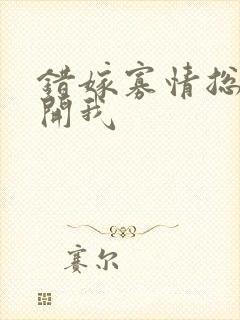 錯嫁寡情總
開我
賽尔